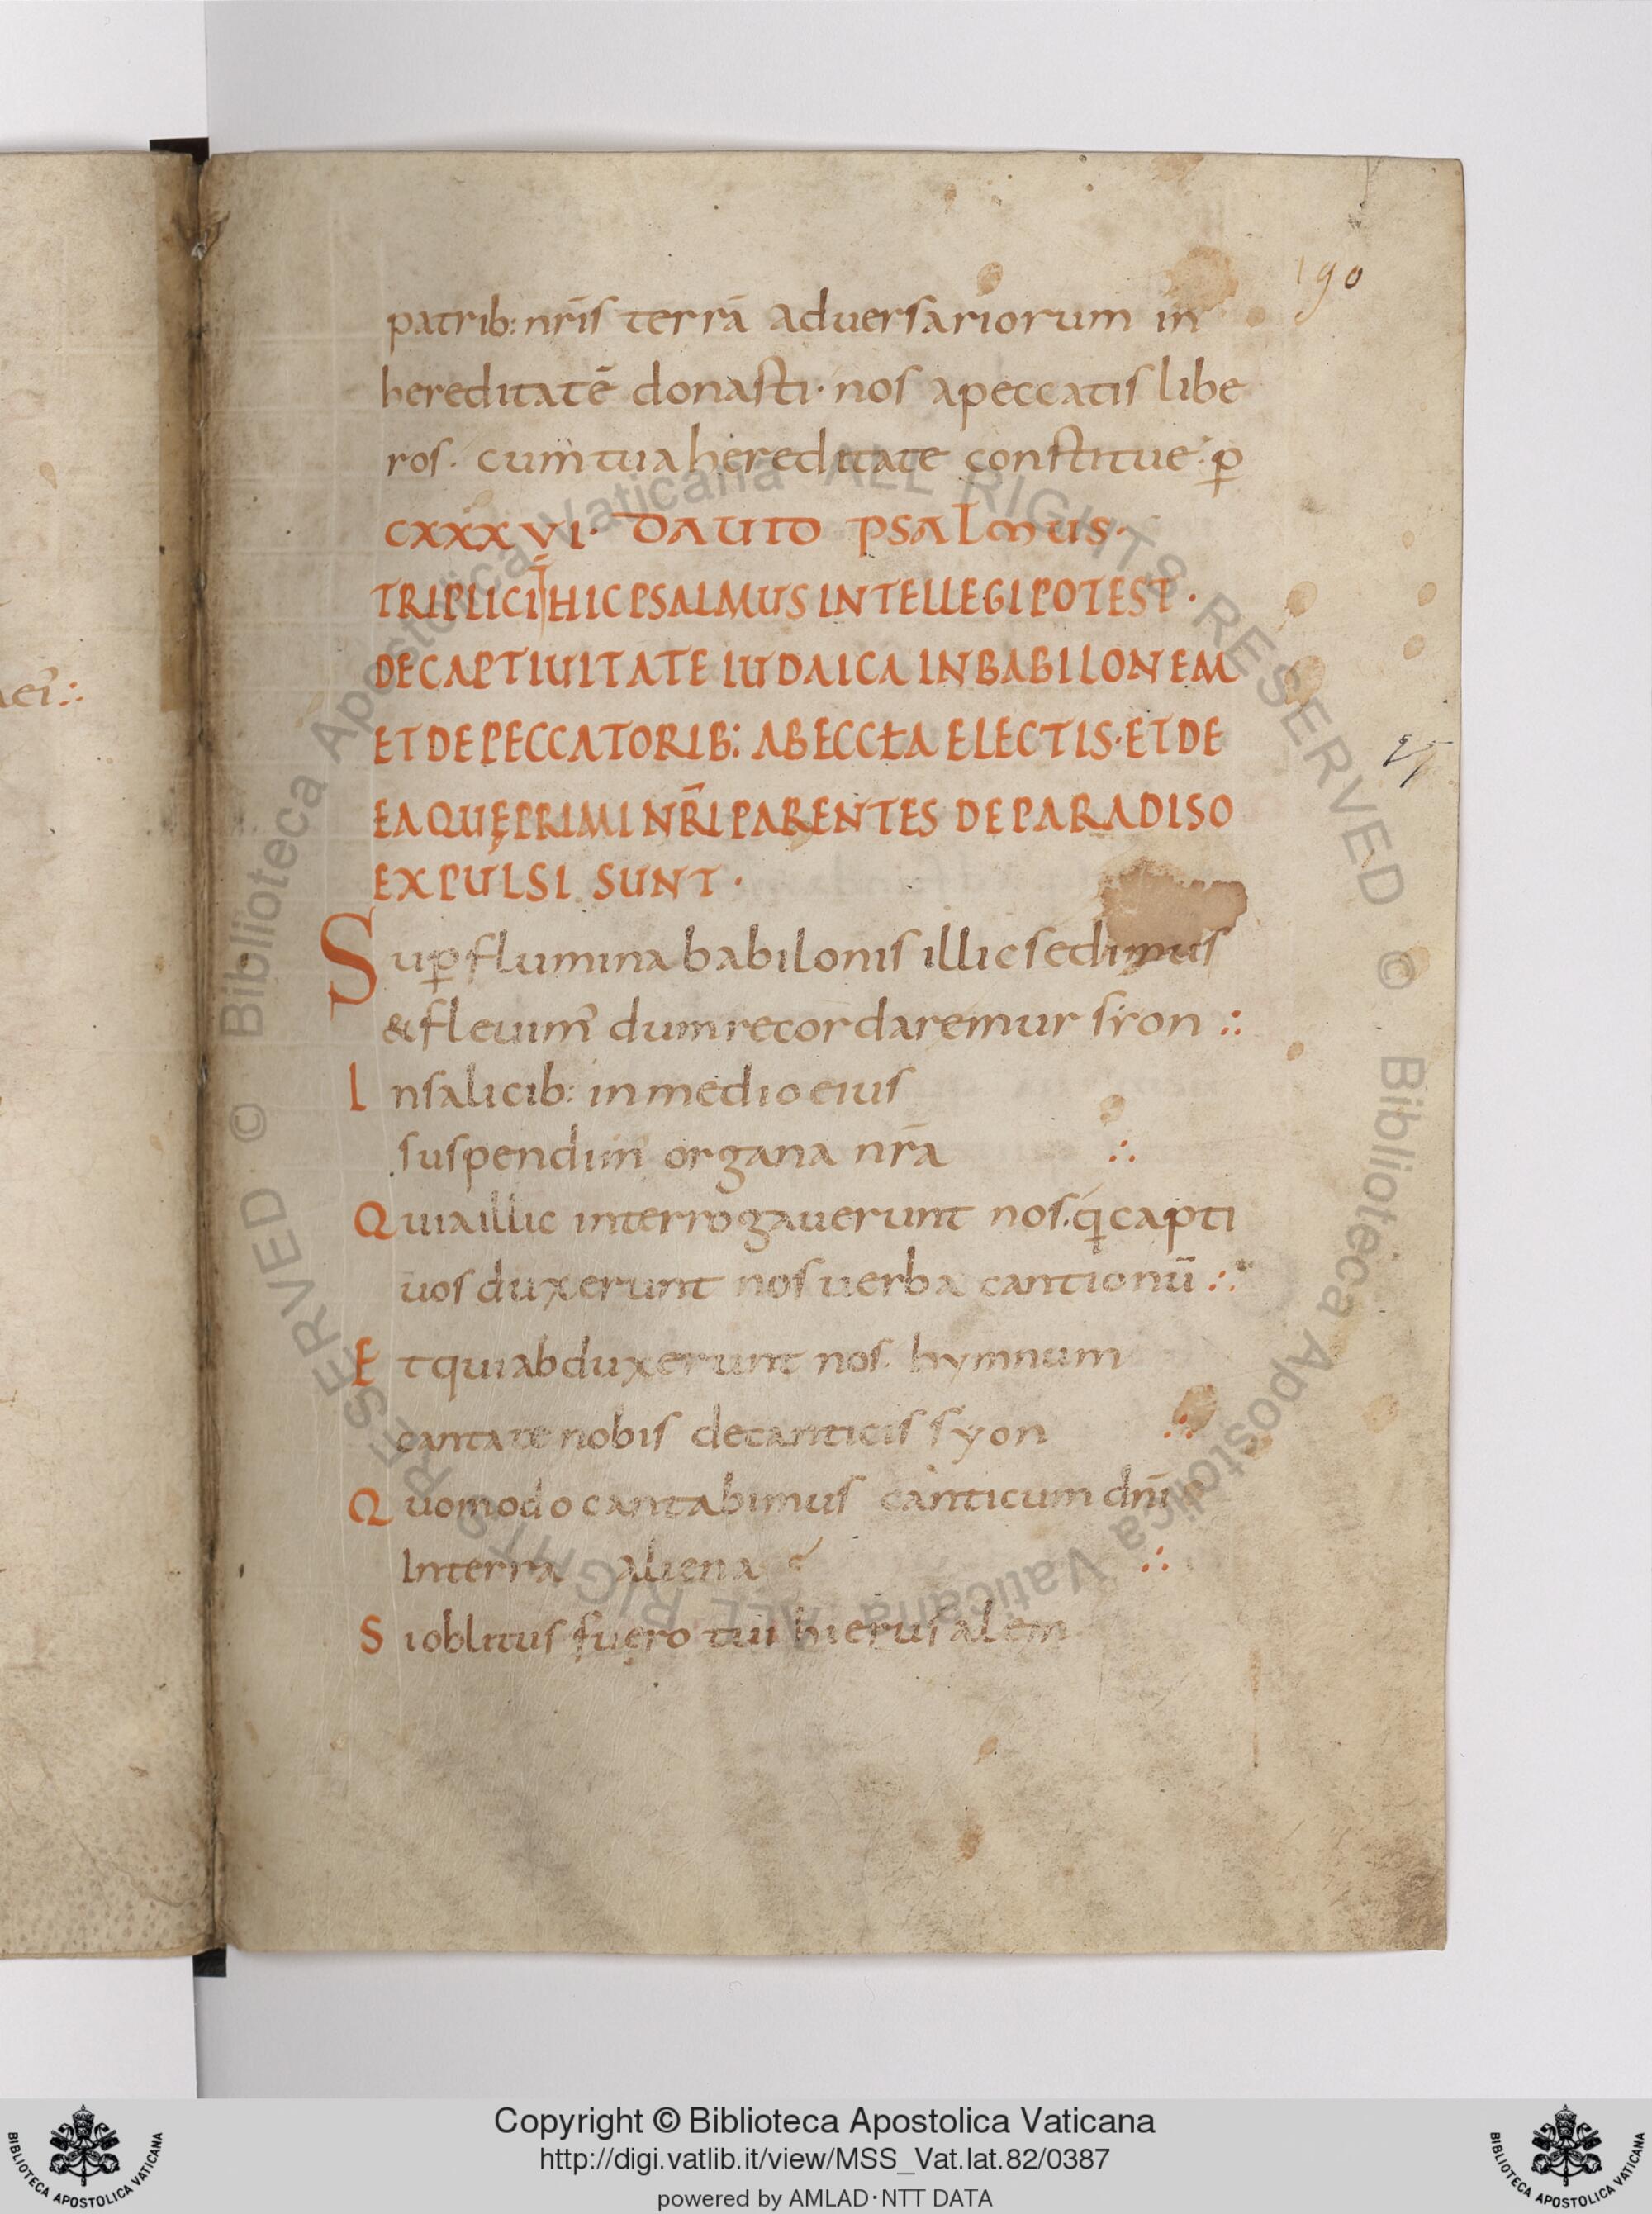 190
patrib: nr̄is terrā aduersariorum in
hereditatē donasti· nos apeccatis libe
ros· cum tua hereditate constitue· ꝑ
CXXXVI· DAUID PSALMUS·
TRIPLICIT̄ HIC PSALMUS INTELLEGI POTEST·
DE CAPTIUITATE IUDAICA IN BABILONEM
ET DE PECCATORIB: AB ECCŁA ELECTIS· ET DE
EA QUĘ PRIMI NR̄I PARENTES DE PARADISO
EXPULSI SUNT·
Suꝑ flumina babilonis illic sedimus
& fleuim᾽ dum recordaremur sion ∴
In salicib: in medio eius
suspendim᾽ organa nr̄a ∴
Quia illic interrogauerunt nos· q́ capti
uos duxerunt nos uerba cantionū ∴
Et qui abduxerunt nos· hymnum
cantate nobis de canticis syon ∴
Quomodo cantabimus canticum dn̄i
In terra aliena ∴
Si oblitus fuero tui hierusalem
Copyright © Biblioteca Apostolica Vaticana
http://digi.vatlib.it/view/MSS_Vat.lat.82/0387
powered by AMLAD·NTT DATA
BIBLIOTECA APOSTOLICA VATICANA
BIBLIOTECA APOSTOLICA VATICANA
© Biblioteca Apostolica Vaticana ALL RIGHTS RESERVED © Biblioteca Apostolica Vaticana ALL RIGHTS RESERVED